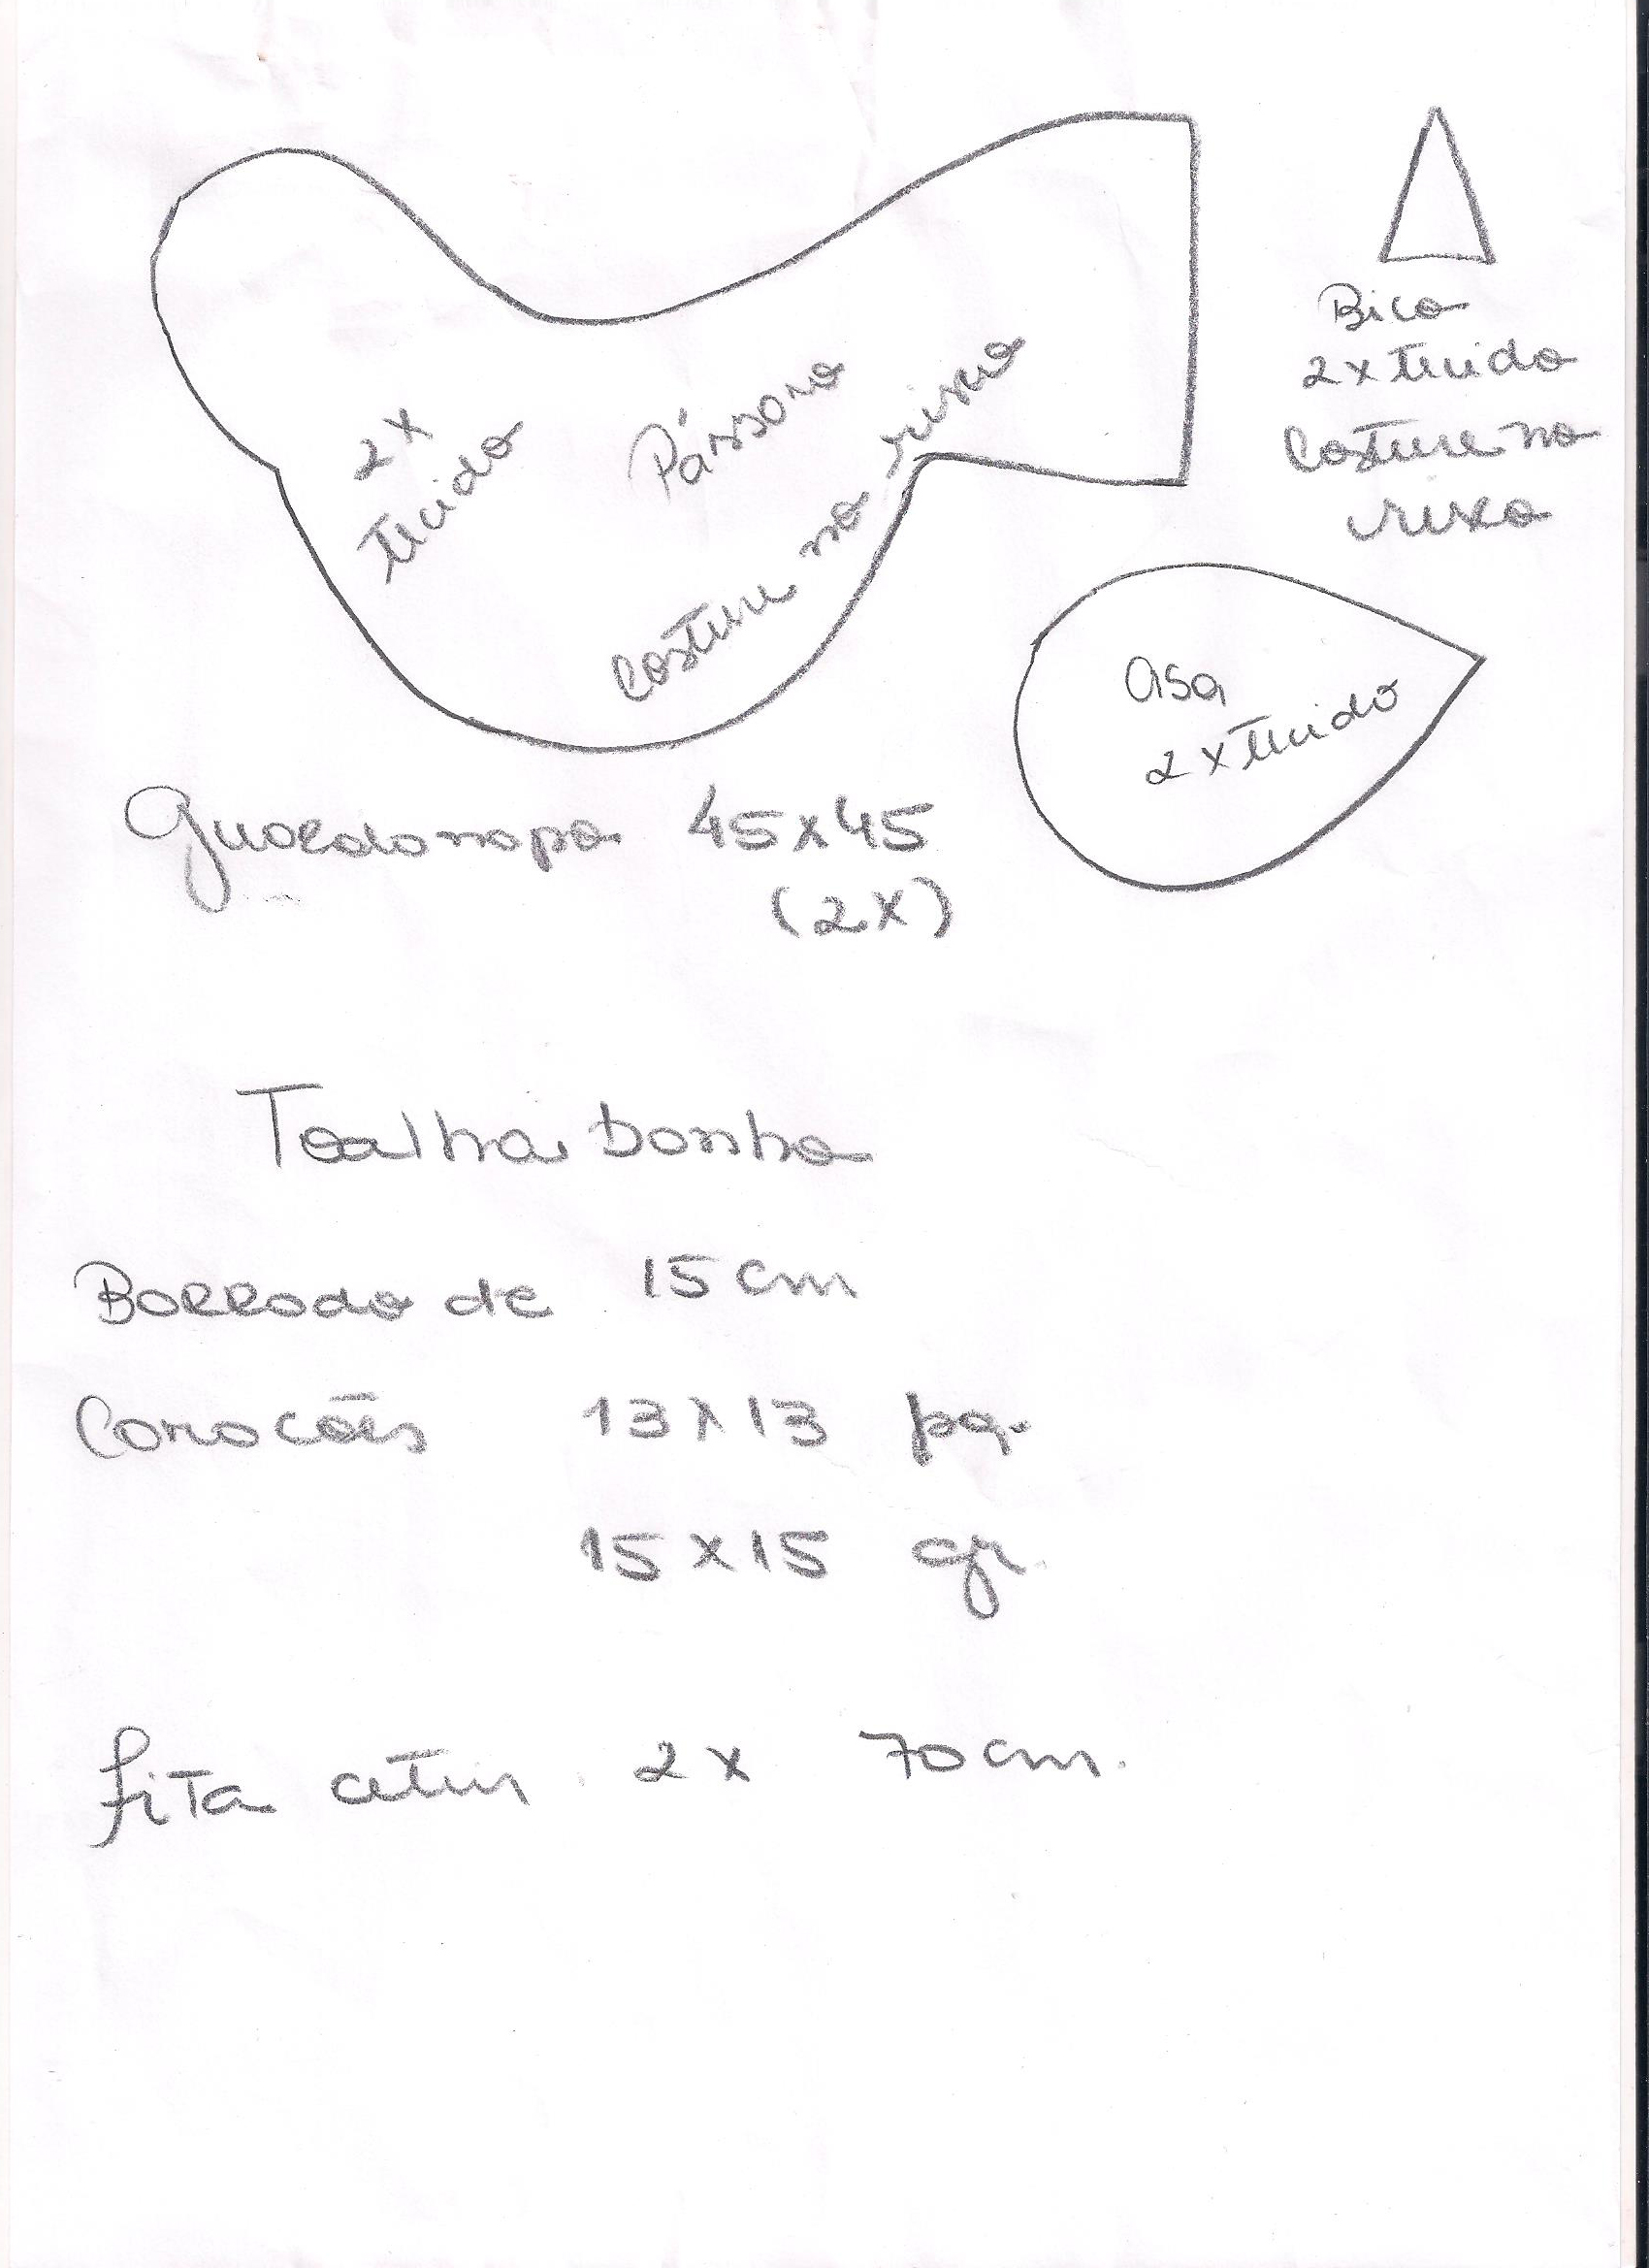 2x
tecido
Pássaro
costure no risco
Bico
2x tecido
Costure no
risco
asa
2x tecido
Guardanapo 45x45
(2x)
Toalha banho
Barrado de 15 cm
Corações 13x13 pq.
15x15 gr.
fita cetim 2x 70cm.